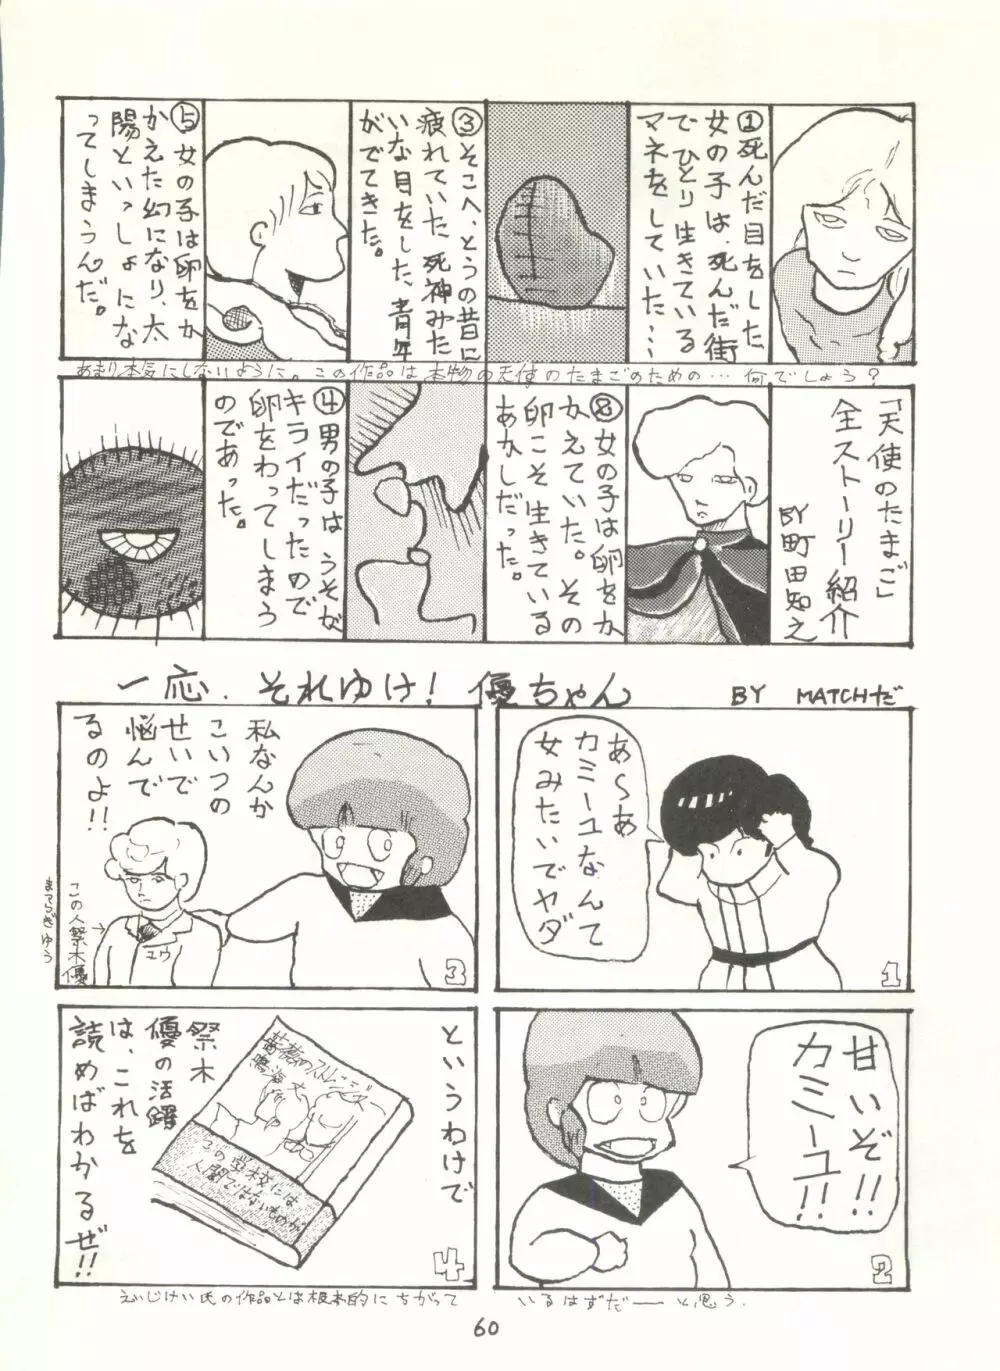 ①死んだ目をした
女の子は、死んだ街
でひとり生きている
マネをしていた…
③そこへ、とうの昔に
疲れていた死神みた
いな目をした、青年
がでてきた。
⑤女の子は卵をか
かえた幻になり、太
陽といっしょにな
ってしまうんだ。
あまり本気にしないように。この作品は本物の天使のたまごのための…何でしょう?
「天使のたまご」
全ストーリー紹介
BY町田知之
⑧女の子は卵をか
かえていた。その
卵こそ生きている
あかしだった。
④男の子は、うそが
キライだったので
卵をわってしまう
のであった。
一応、それゆけ!優ちゃん BY MATCHだ
あ〜あ
カミーユなんて
女みたいでヤダ
1
甘いぞ!!
カミーユ!!
2
私なんか
こいつの
せいで
悩んで
るのよ!!
ユウ
この人祭木優
まつらぎゆう
3
というわけで
薔薇のストレンジャー
鳴海丈
この学校には
人間ではないものが
祭木
優の活躍
は、これを
読めばわかるぜ!!
4
えいじけい氏の作品とは根本的にちがって
いるはずだ――と思う.
60